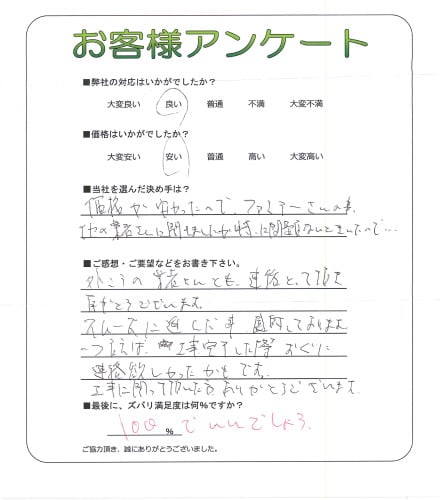 お客様アンケート
■弊社の対応はいかがでしたか？
大変良い 良い 普通 不満 大変不満
■価格はいかがでしたか？
大変安い 安い 普通 高い 大変高い
■当社を選んだ決め手は？
価格が安かったので、ファミテーさんの事、
他の業者さんに聞きましたが特に問題ないときいたので…
■ご感想・ご要望などをお書き下さい。
外こうの業者さんとも、連絡とって頂き
有がとうございます。
スムーズに進んだ事感謝しております
一つ言えば、工事完了した際すぐに
連絡欲しかったかもです。
工事に関って頂いた方ありがとうございます。
■最後に、ズバリ満足度は何%ですか？
100 % でいいでしょう。
ご協力頂き、誠にありがとうございました。